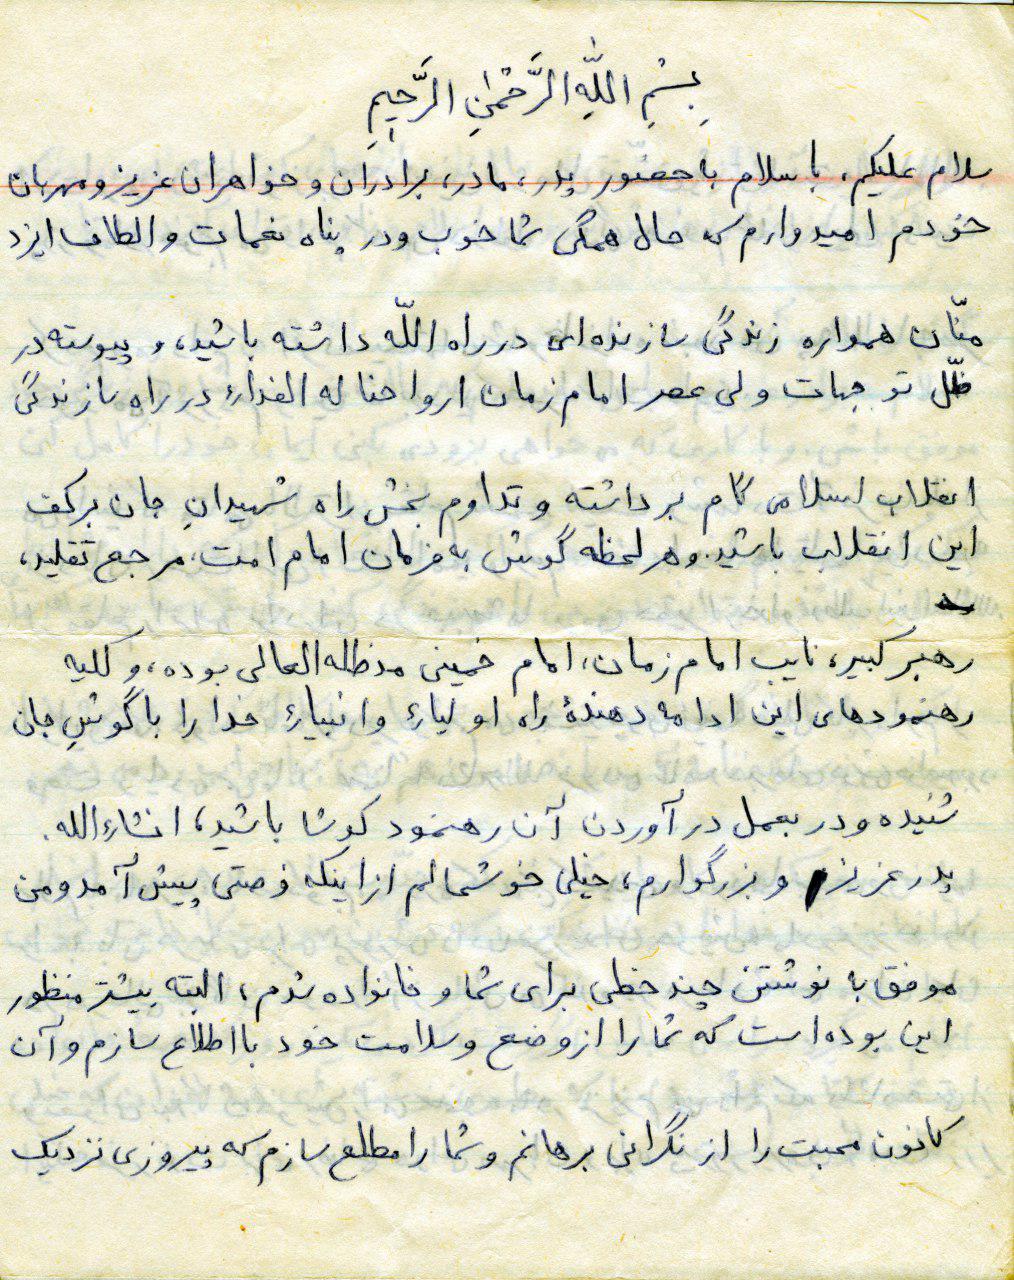 بِسْمِ اللّٰهِ الرَّحْمٰنِ الرَّحِیمِ
سلام علیکم، با سلام با حضور پدر، مادر، برادران و خواهران عزیز و مهربان
خودم امیدوارم که حال همگی شما خوب و در پناه نعمات و الطاف ایزد
منّان همواره زندگی سازنده‌ای در راه اللّه داشته باشید، و پیوسته در
ظلّ توجهات ولی عصر امام زمان ارواحنا له الفداء در راه سازندگی
انقلاب اسلامی گام برداشته و تداوم بخش راه شهیدان جان برکف
این انقلاب باشید. و هر لحظه گوش به فرمان امام امت، مرجع تقلید،
رهبر کبیر، نایب امام زمان، امام خمینی مدظله العالی بوده، و کلیه
رهنمودهای این ادامه دهندهٔ راه اولیاء و انبیاء خدا را با گوشِ جان
شنیده و در بعمل درآوردن آن رهنمود کوشا باشید، انشاءالله.
پدر عزیزم و بزرگوارم، خیلی خوشحالم از اینکه فرصتی پیش آمد و من
موفق به نوشتن چند خطی برای شما و خانواده شدم، البته بیشتر منظور
این بوده است که شما را از وضع و سلامت خود با اطلاع سازم و آن
کانون محبت را از نگرانی برهانم و شما را مطلع سازم که پیروزی نزدیک